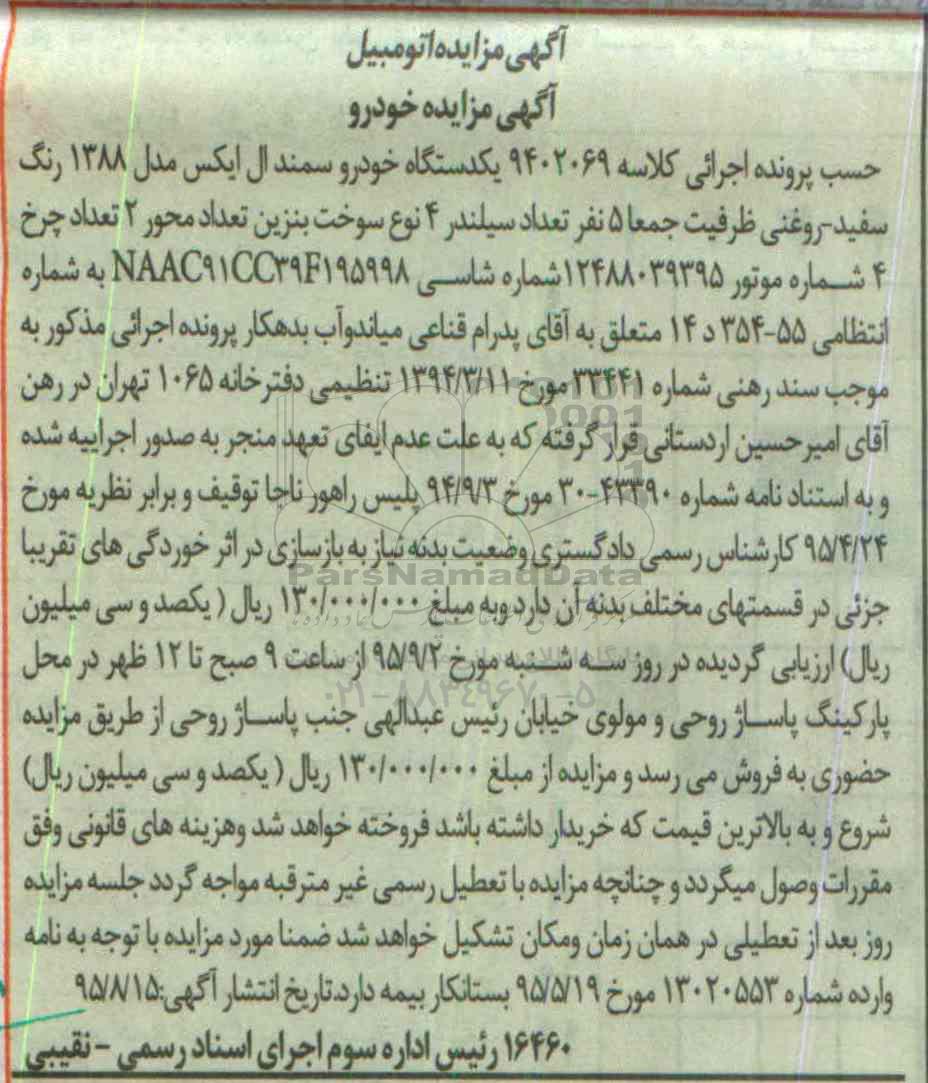 آگهی مزایده اتومبیل
آگهی مزایده خودرو
حسب پرونده اجرائی کلاسه ۹۴۰۲۰۶۹ یکدستگاه خودرو سمند ال ایکس مدل ۱۳۸۸ رنگ
سفید-روغنی ظرفیت جمعا ۵ نفر تعداد سیلندر ۴ نوع سوخت بنزین تعداد محور ۲ تعداد چرخ
۴ شماره موتور ۱۲۴۸۸۰۳۹۳۹۵شماره شاسی NAAC۹۱CC۳۹F۱۹۵۹۹۸ به شماره
انتظامی ۵۵-۳۵۴ د ۱۴ متعلق به آقای پدرام قناعی میاندوآب بدهکار پرونده اجرائی مذکور به
موجب سند رهنی شماره ۳۳۴۴۱ مورخ ۱۳۹۴/۳/۱۱ تنظیمی دفترخانه ۱۰۶۵ تهران در رهن
آقای امیرحسین اردستانی قرار گرفته که به علت عدم ایفای تعهد منجر به صدور اجراییه شده
و به استناد نامه شماره ۴۳۳۹۰-۳۰ مورخ ۹۴/۹/۳ پلیس راهور ناجا توقیف و برابر نظریه مورخ
۹۵/۴/۲۴ کارشناس رسمی دادگستری وضعیت بدنه نیاز به بازسازی در اثر خوردگی های تقریبا
ParsNamadData
جزئی در قسمتهای مختلف بدنه آن دارد وبه مبلغ ۱۳۰/۰۰۰/۰۰۰ ریال ( یکصد و سی میلیون
ریال) ارزیابی گردیده در روز سه شنبه مورخ ۹۵/۹/۲ از ساعت ۹ صبح تا ۱۲ ظهر در محل
۰۲۱-۸۸۳۴۹۶۷۰-۵
پارکینگ پاساژ روحی و مولوی خیابان رئیس عبدالهی جنب پاساژ روحی از طریق مزایده
حضوری به فروش می رسد و مزایده از مبلغ ۱۳۰/۰۰۰/۰۰۰ ریال ( یکصد و سی میلیون ریال)
شروع و به بالاترین قیمت که خریدار داشته باشد فروخته خواهد شد وهزینه های قانونی وفق
مقررات وصول میگردد و چنانچه مزایده با تعطیل رسمی غیر مترقبه مواجه گردد جلسه مزایده
روز بعد از تعطیلی در همان زمان ومکان تشکیل خواهد شد ضمنا مورد مزایده با توجه به نامه
وارده شماره ۱۳۰۲۰۵۵۳ مورخ ۹۵/۵/۱۹ بستانکار بیمه دارد.تاریخ انتشار آگهی:۹۵/۸/۱۵
۱۶۴۶۰ رئیس اداره سوم اجرای اسناد رسمی - نقیبی